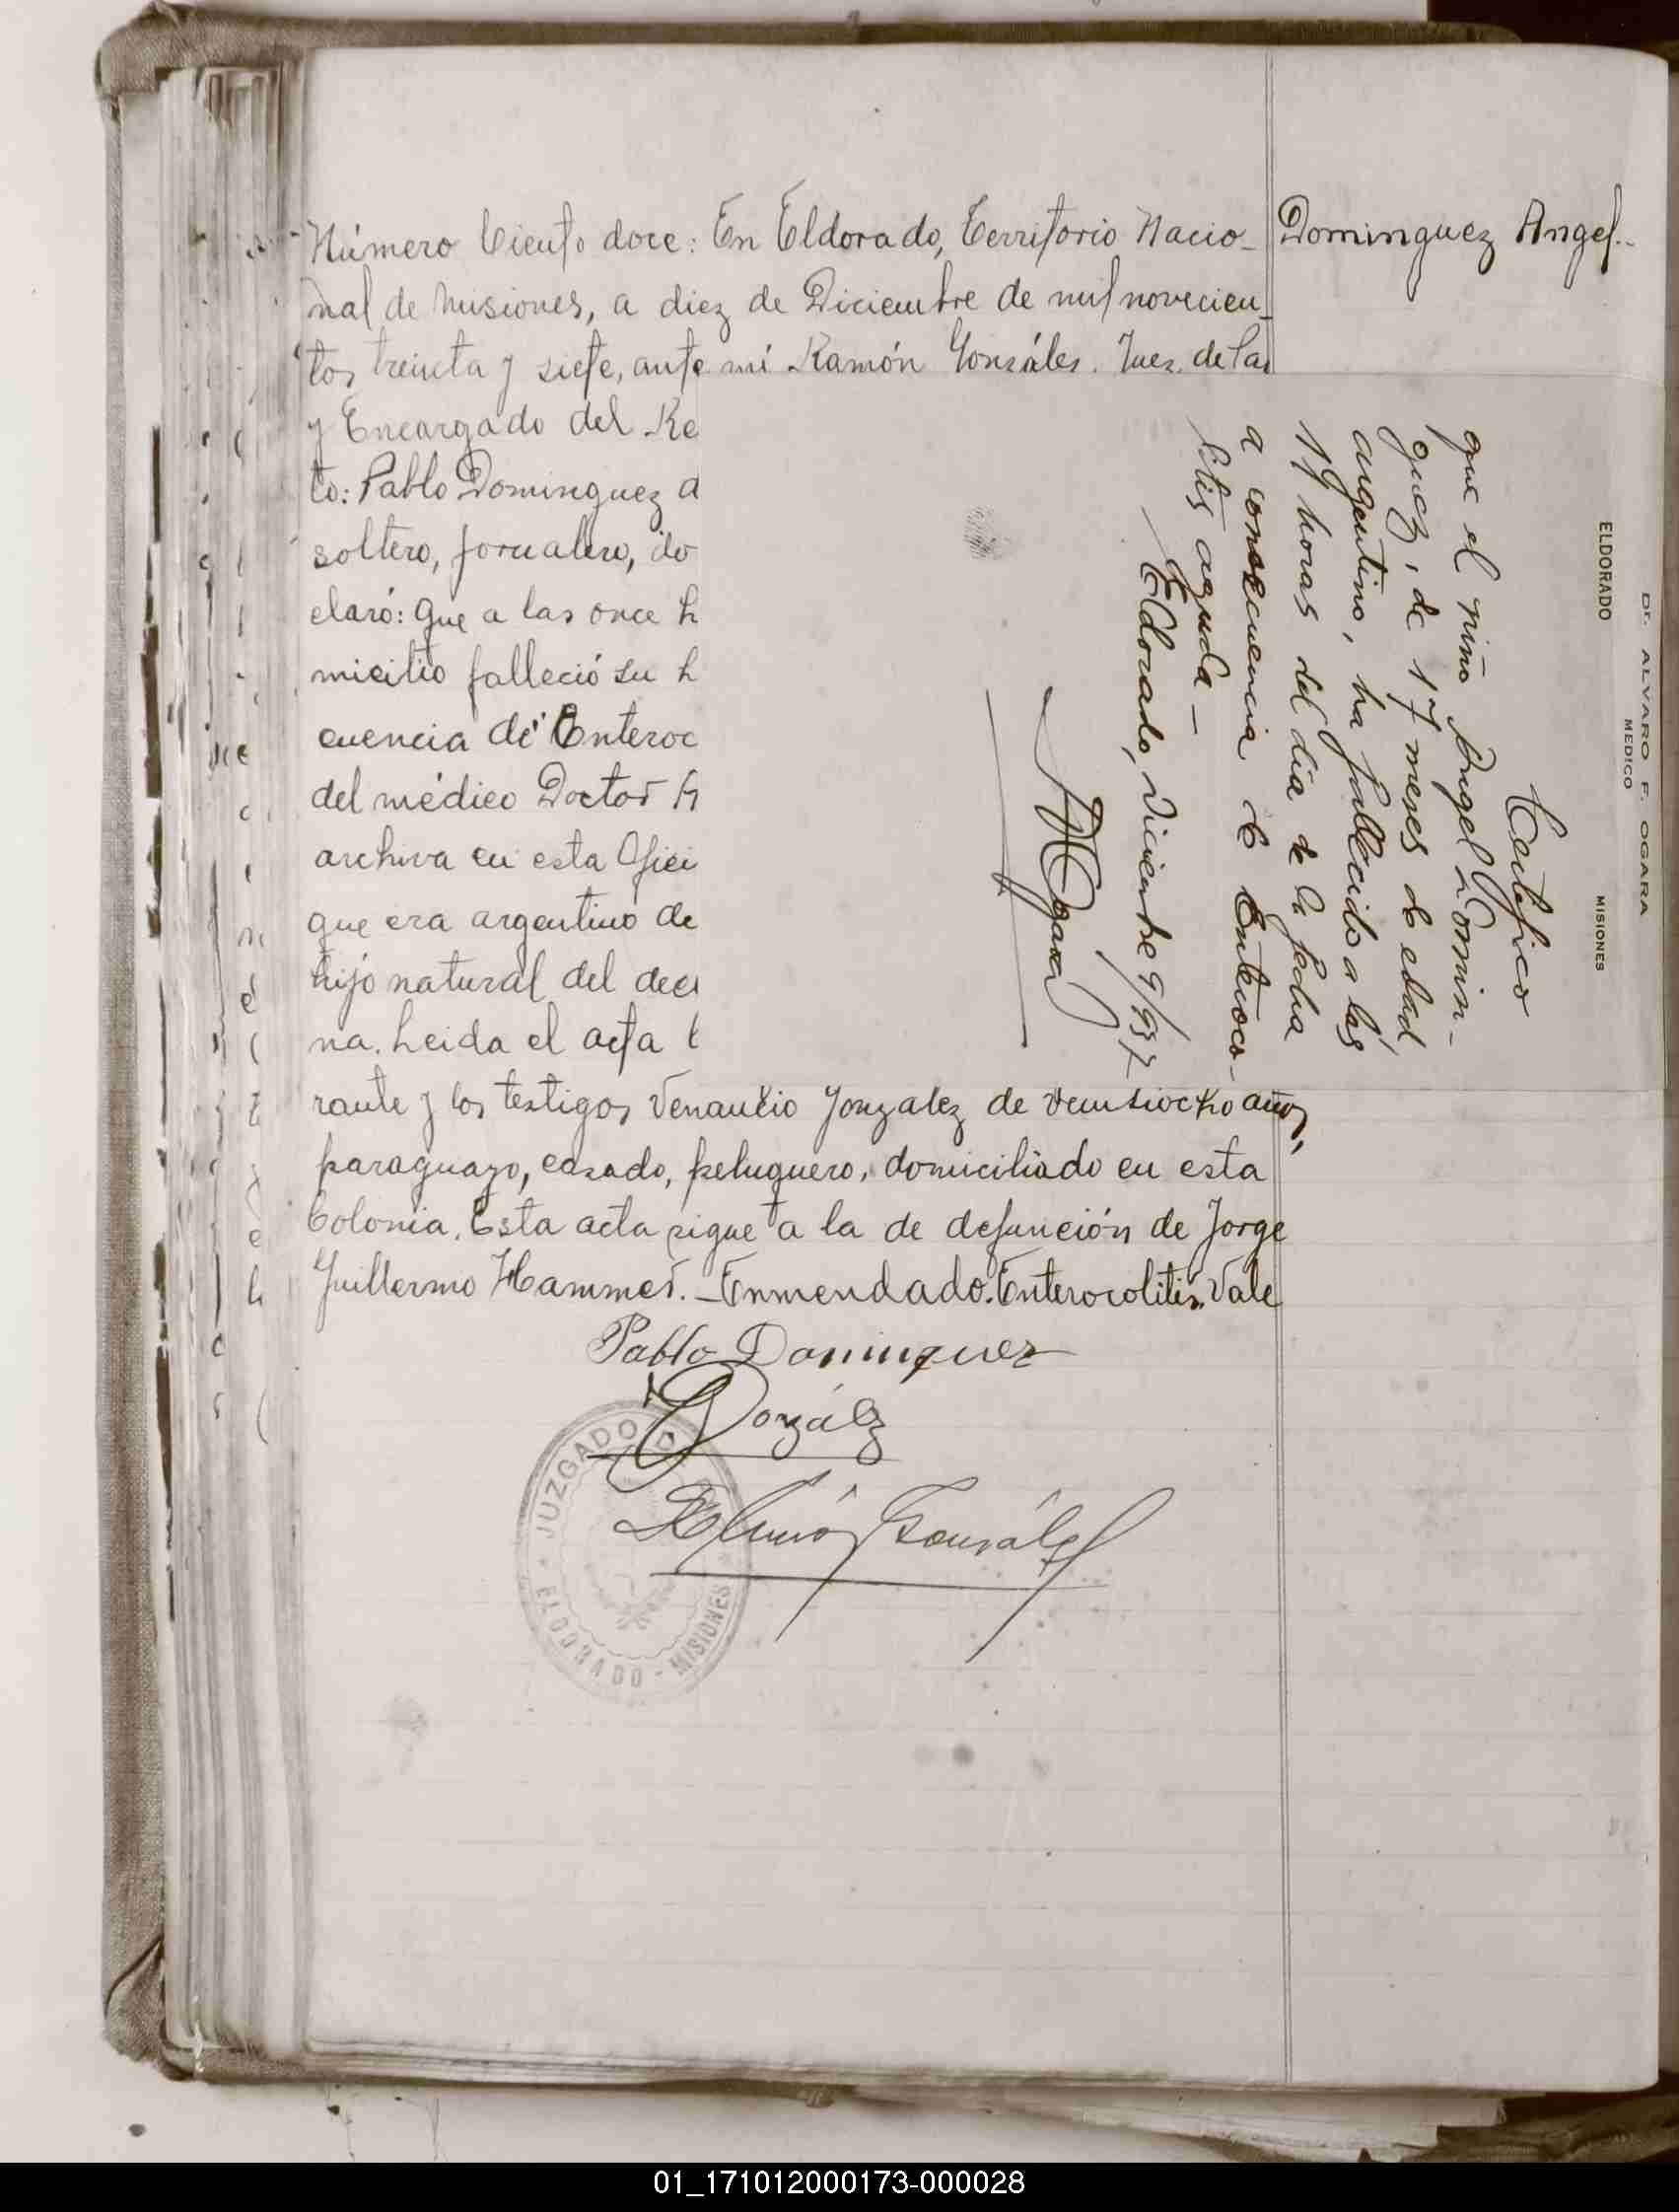 Número Ciento doce: En Eldorado, Territorio Nacio-
nal de Misiones, a diez de Diciembre de mil novecien-
tos treinta y siete, ante mí Ramón Gonzáles. Juez de Paz
y Encargado del Re
to: Pablo Dominguez d
soltero, jornalero, do
claró: Que a las once h
micilio falleció su h
cuencia de Enteroc
del médico Doctor A
archiva en esta Ofici
que era argentino de
hijo natural del decl
na. Leida el acta l
rante y los testigos Venancio Gonzalez de veintiocho años,
paraguayo, casado, peluquero, domiciliado en esta
Colonia. Esta acta sigue a la de defunción de Jorge
Guillermo Hammer. - Enmendado. Enterocolitis. Vale
Pablo Dominguez
González
Ramón Gonzáles
JUZGADO
ELDORADO - MISIONES
Dominguez Angel.-
DR. ALVARO F. OGARA
MEDICO
ELDORADO MISIONES
Certifico
que el niño Angel Domin-
guez, de 17 meses de edad
argentino, ha fallecido a las
19 horas del día de la fecha
a consecuencia de Enteroco-
litis aguda -
Eldorado, Diciembre 9/937
Ogara
01_171012000173-000028